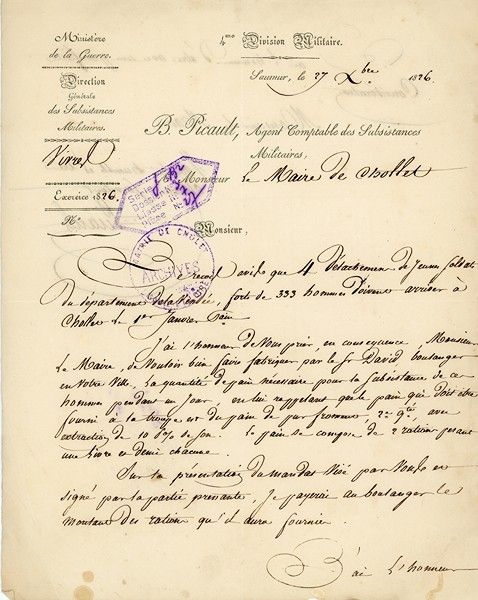 Ministère
de la Guerre.
Direction
Générale
des Subsistances
Militaires.
Vivres
Exercice 1826.
N.º
4me Division Militaire.
Saumur, le 27 Xbre 1826
B. Picault, Agent Comptable des Subsistances
Militaires,
Monsieur le Maire de Chollet
Série
Dossier
Liasse N
Pièce N
MAIRIE DE CHOLET
ARCHIVES
Monsieur,
Je reçois avis que 4 Détachemens de Jeunes Soldats
du département de la Vendée, forts de 333 hommes doivent arriver à
Chollet le 1er Janvier
J'ai l'honneur de Vous prier, en conséquence, Monsieur
le Maire, de Vouloir bien faire fabriquer par le Sr David boulanger
en Votre Ville, la quantité de pain nécessaire pour la Subsistance de ces
hommes pendant un jour, en lui rappelant que le pain qui doit être
fourni à la troupe est du pain de pur froment 2e qté, avec
extraction de 10 p% de Son. Le pain se compose de 2 rations pesant
une livre et demie chacune.
Sur la présentation du mandat Visé par Vous et
signé par la partie prenante, Je payerai au boulanger le
montant des rations qu'il aura fournies.
J'ai L'honneur